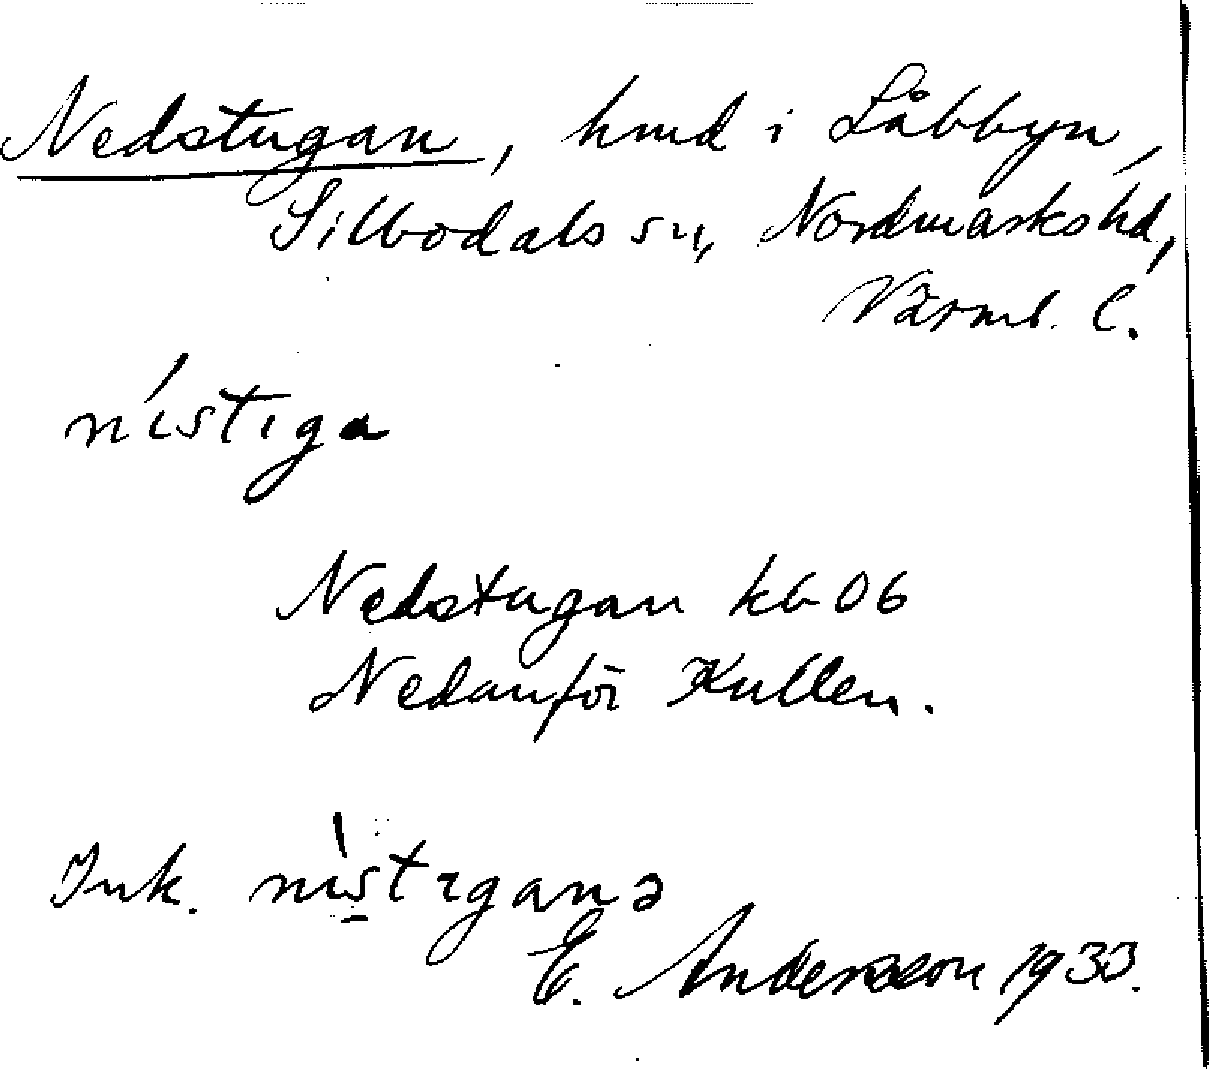 Nedstugan, hmd i Låbbyn,
Silbodals sn, Nordmarks hd,
Värml. l.
nístiga
Nedstugan kb 06
Nedanför Kullen.
Ink. nìstıganə
E. Andersson 1933.